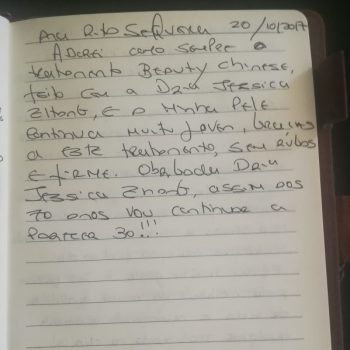 Ana Rito Serpa 20/10/2017
Adorei como sempre o
tratamento Beauty Chinese,
feito com a Dra Jessica
Zhang, e a minha pele
continua muito jovem, graças
a este tratamento, sem rugas
e firme. Obrigada Dra
Jessica Zhang, assim aos
70 anos vou continuar a
parecer 30!!!